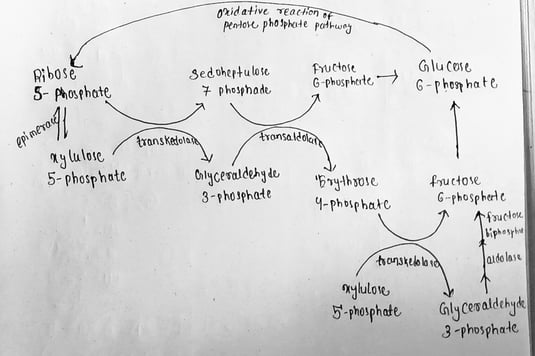 Oxidative reaction of
pentose phosphate pathway
Ribose
5- phosphate
Sedoheptulose
7 phosphade
Fructose
6-phosphate
Glucose
6-phosphate
epimerase
transkedolase
transaldolase
xylulose
5-phosphate
Glyceraldehyde
3-phosphate
Erythrose
4-phosphate
fructose
6-phosphate
fructose
biphosphate
aldolase
transkedolase
xylulose
5-phosphate
Glyceraldehyde
3-phosphate